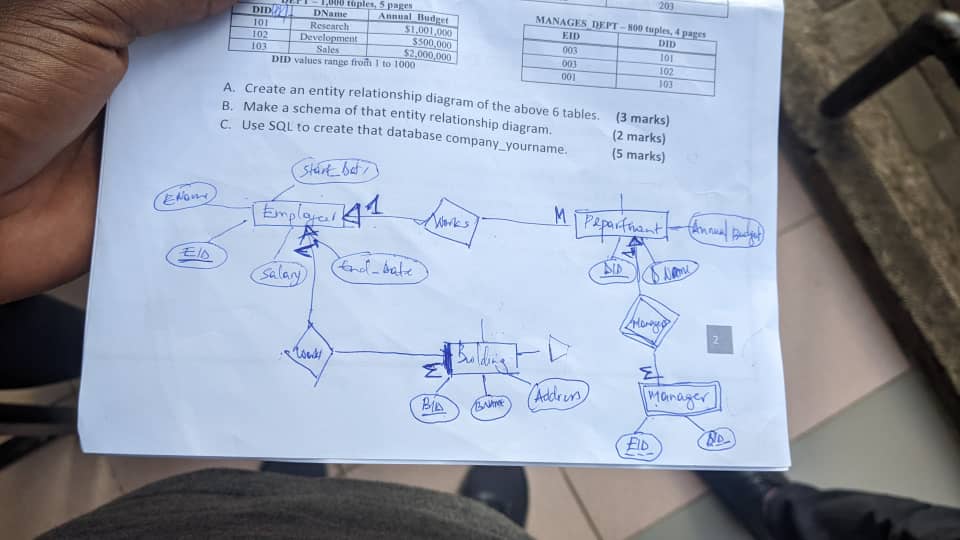 DEPT – 1,000 tuples, 5 pages
DID DName Annual Budget
101 Research $1,001,000
102 Development $500,000
103 Sales $2,000,000
DID values range from 1 to 1000
203
MANAGES_DEPT – 800 tuples, 4 pages
EID DID
003 101
003 102
001 103
A. Create an entity relationship diagram of the above 6 tables. (3 marks)
B. Make a schema of that entity relationship diagram. (2 marks)
C. Use SQL to create that database company_yourname. (5 marks)
EName
Employee 1
Works
M Department
Annual Budget
EID
Salary
End_Date
DID
DName
Manages
2
Works
M
Building
M
BID
BName
Address
Manager
EID